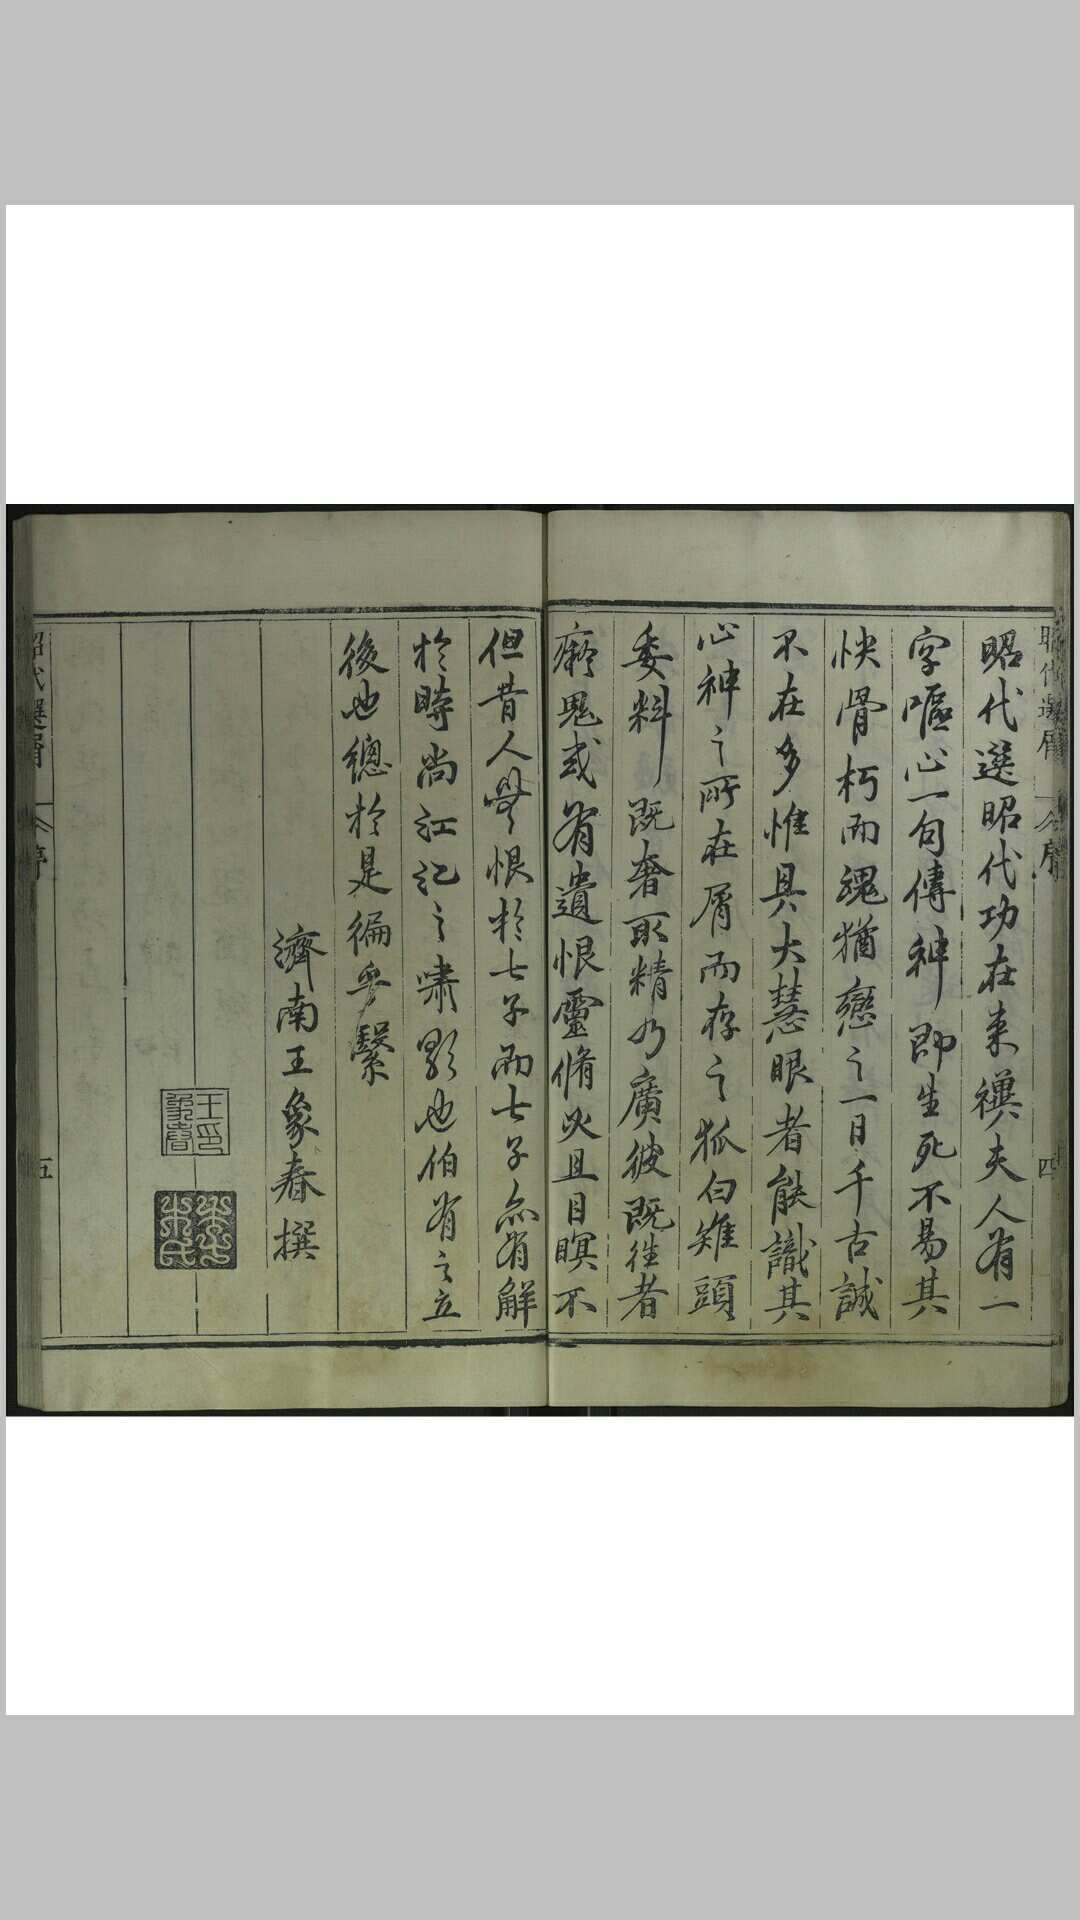 昭代選屑
序
四
昭代選昭代功在來禩夫人有一
字嘔心一句傳神即生死不易其
快骨朽而魂猶戀之一日千古誠
不在多惟具大慧眼者能識其
心神之所在屑而存之狐白雉頭
委料既奢取精乃廣彼既往者
癡鬼或有遺恨靈脩必且目瞑不
但昔人無恨於七子而七子亦有解
於時尚江汜之嘯歌也伯有之立
後也總於是編乎繫
濟南王象春撰
王象春印
季木氏
昭代選屑
序
五